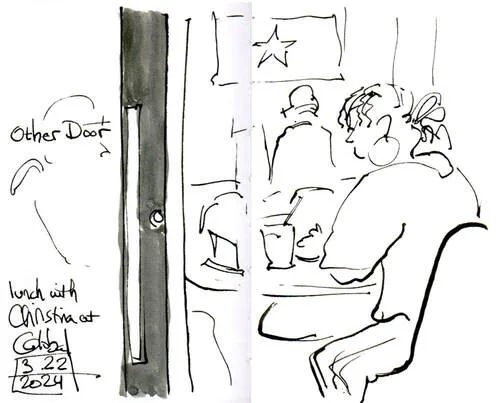 Other Door
lunch with
Christina at
3.22
2024